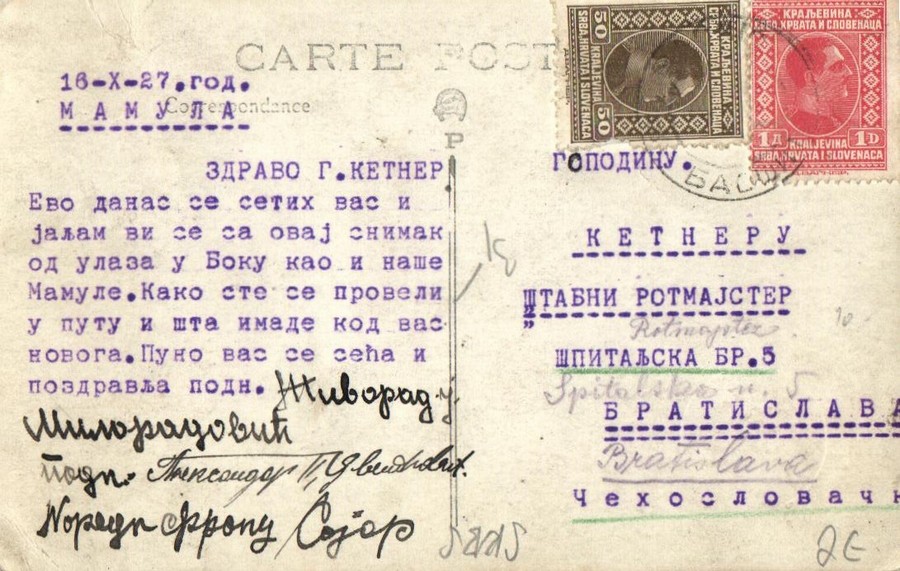 CARTE POST
Correspondance
16-X-27.год.
МАМУЛА
ЗДРАВО Г.КЕТНЕР
Ево данас се сетих вас и
јаљам ви се са овај снимак
од улаза у Боку као и наше
Мамуле.Како сте се провели
у путу и шта имаде код вас
новога.Пуно вас се сећа и
поздравља подн. Живорад у
Милорадовић
подп. Александар П.
50
КРАЉЕВИНА
СРБА, ХРВАТА И СЛОВЕНАЦА
KRALJEVINA
SRBA, HRVATA I SLOVENACA
50
КРАЉЕВИНА
СРБА, ХРВАТА И СЛОВЕНАЦА
1Д 1D
KRALJEVINA
SRBA, HRVATA I SLOVENACA
ГОСПОДИНУ.
КЕТНЕРУ
ШТАБНИ РОТМАЈСТЕР
Rotmajster
ШПИТАЉСКА БР.5
Spitalska n. 5
БРАТИСЛАВА
Bratislava
Чехословачк
2€